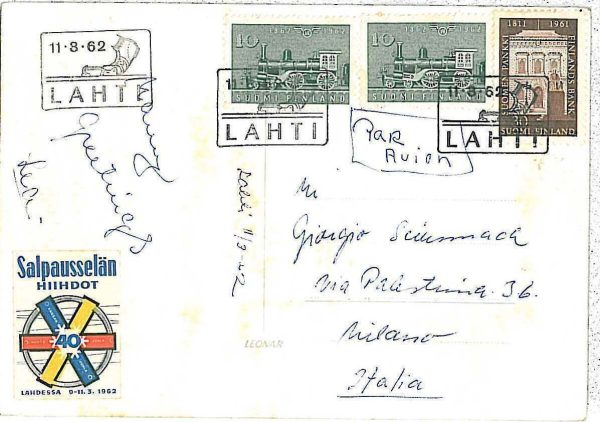 11·3·62
LAHTI
10
1862 1962
SUOMI FINLAND
10
1862 1962
SUOMI FINLAND
1811 1961
SUOMEN PANKKI
FINLANDS BANK
30
SUOMI-FINLAND
LAHTI
11·3·62
LAHTI
PAR
AVION
Greetings
Lea
Lahti 11/3-62
Giorgio
via Palestrina 36.
Milano
Italia
LEONAR
Salpausselän
HIIHDOT
40
LAHDESSA 9-11.3.1962